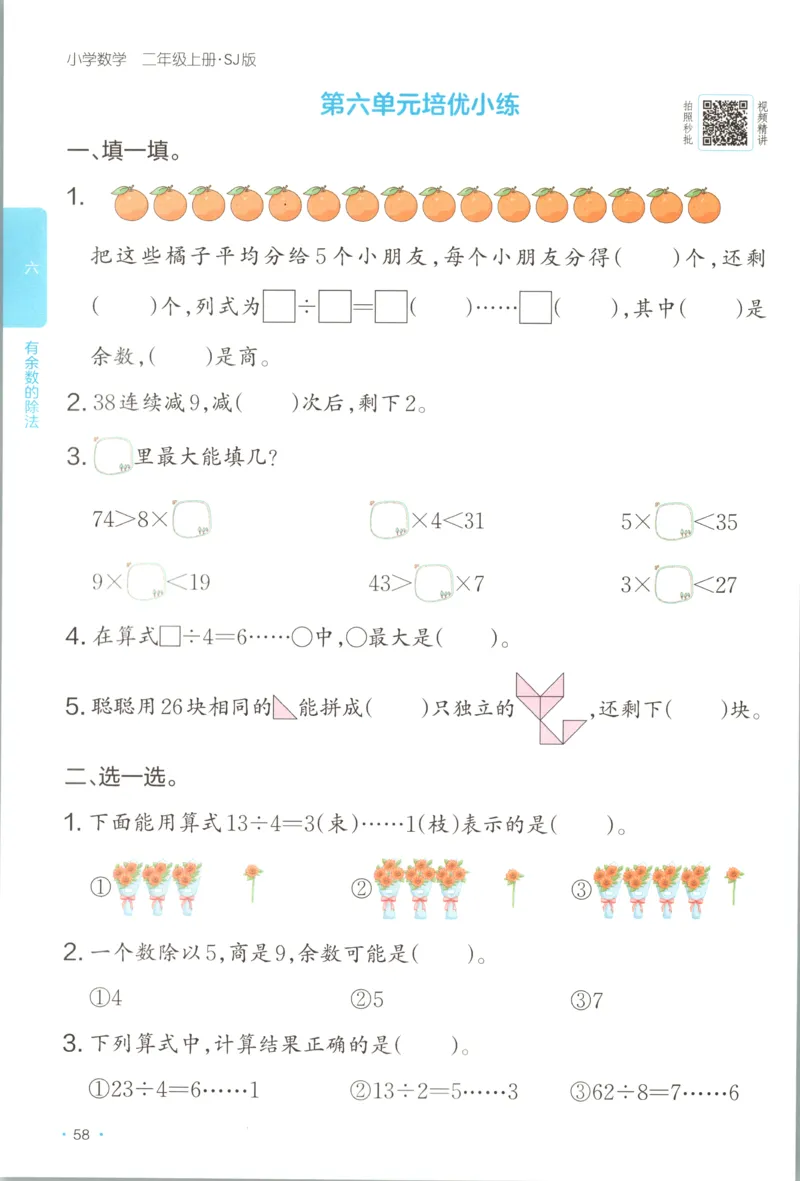 小学数学 二年级上册·SJ版
第六单元培优小练
拍照秒批
视频精讲
一、填一填。
1.
把这些橘子平均分给5个小朋友,每个小朋友分得( )个,还剩
( )个,列式为□÷□=□( )……□( ),其中( )是
余数,( )是商。
2. 38连续减9,减( )次后,剩下2。
3. 里最大能填几?
74>8× ×4<31 5× <35
9× <19 43> ×7 3× <27
4. 在算式□÷4=6……○中,○最大是( )。
5. 聪聪用26块相同的 能拼成( )只独立的 ,还剩下( )块。
二、选一选。
1. 下面能用算式13÷4=3(束)……1(枝)表示的是( )。
① ② ③
2. 一个数除以5,商是9,余数可能是( )。
①4 ②5 ③7
3. 下列算式中,计算结果正确的是( )。
①23÷4=6……1 ②13÷2=5……3 ③62÷8=7……6
· 58 ·
六
有余数的除法